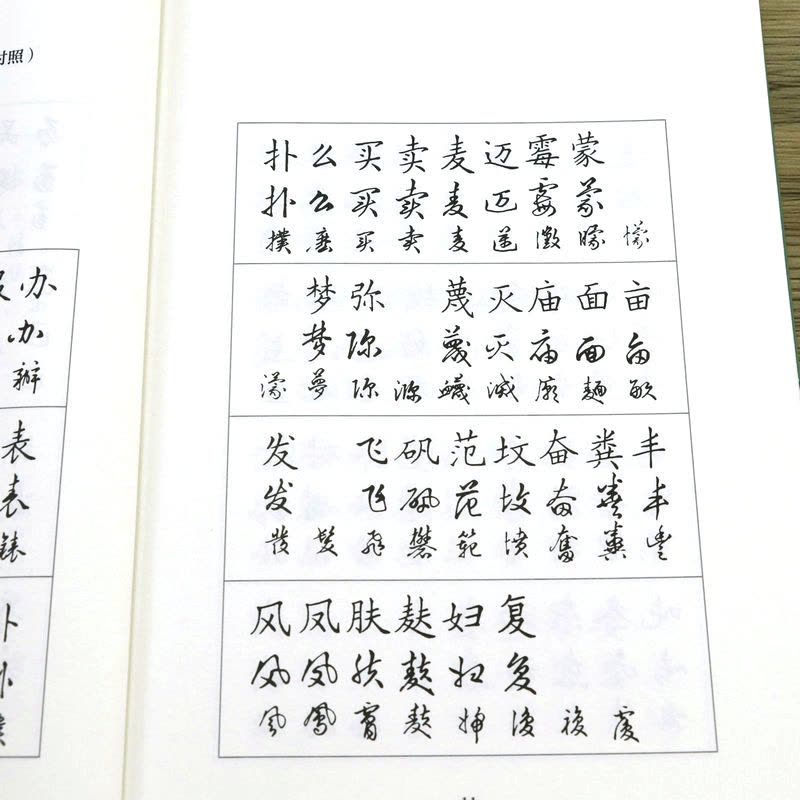 对照）
办
办
辦
表
表
錶
扑么买卖麦迈霉蒙
扑么买卖麦迈霉蒙
撲麼买卖麦邁黴矇懞
梦弥蔑灭庙面亩
梦弥蔑灭庙面亩
濛夢弥瀰衊滅廟麵畝
发飞矾范坟奋粪丰
发飞矾范坟奋粪丰
發髮飛礬範墳奮糞豐
风凤肤麸妇复
风凤肤麸妇复
風鳳膚麸婦復複覆